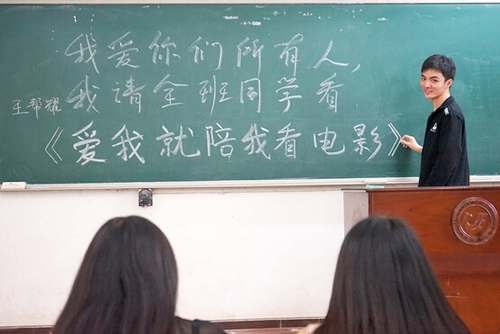 我爱你们所有人,
我请全班同学看
王帮耀
《爱我就陪我看电影》